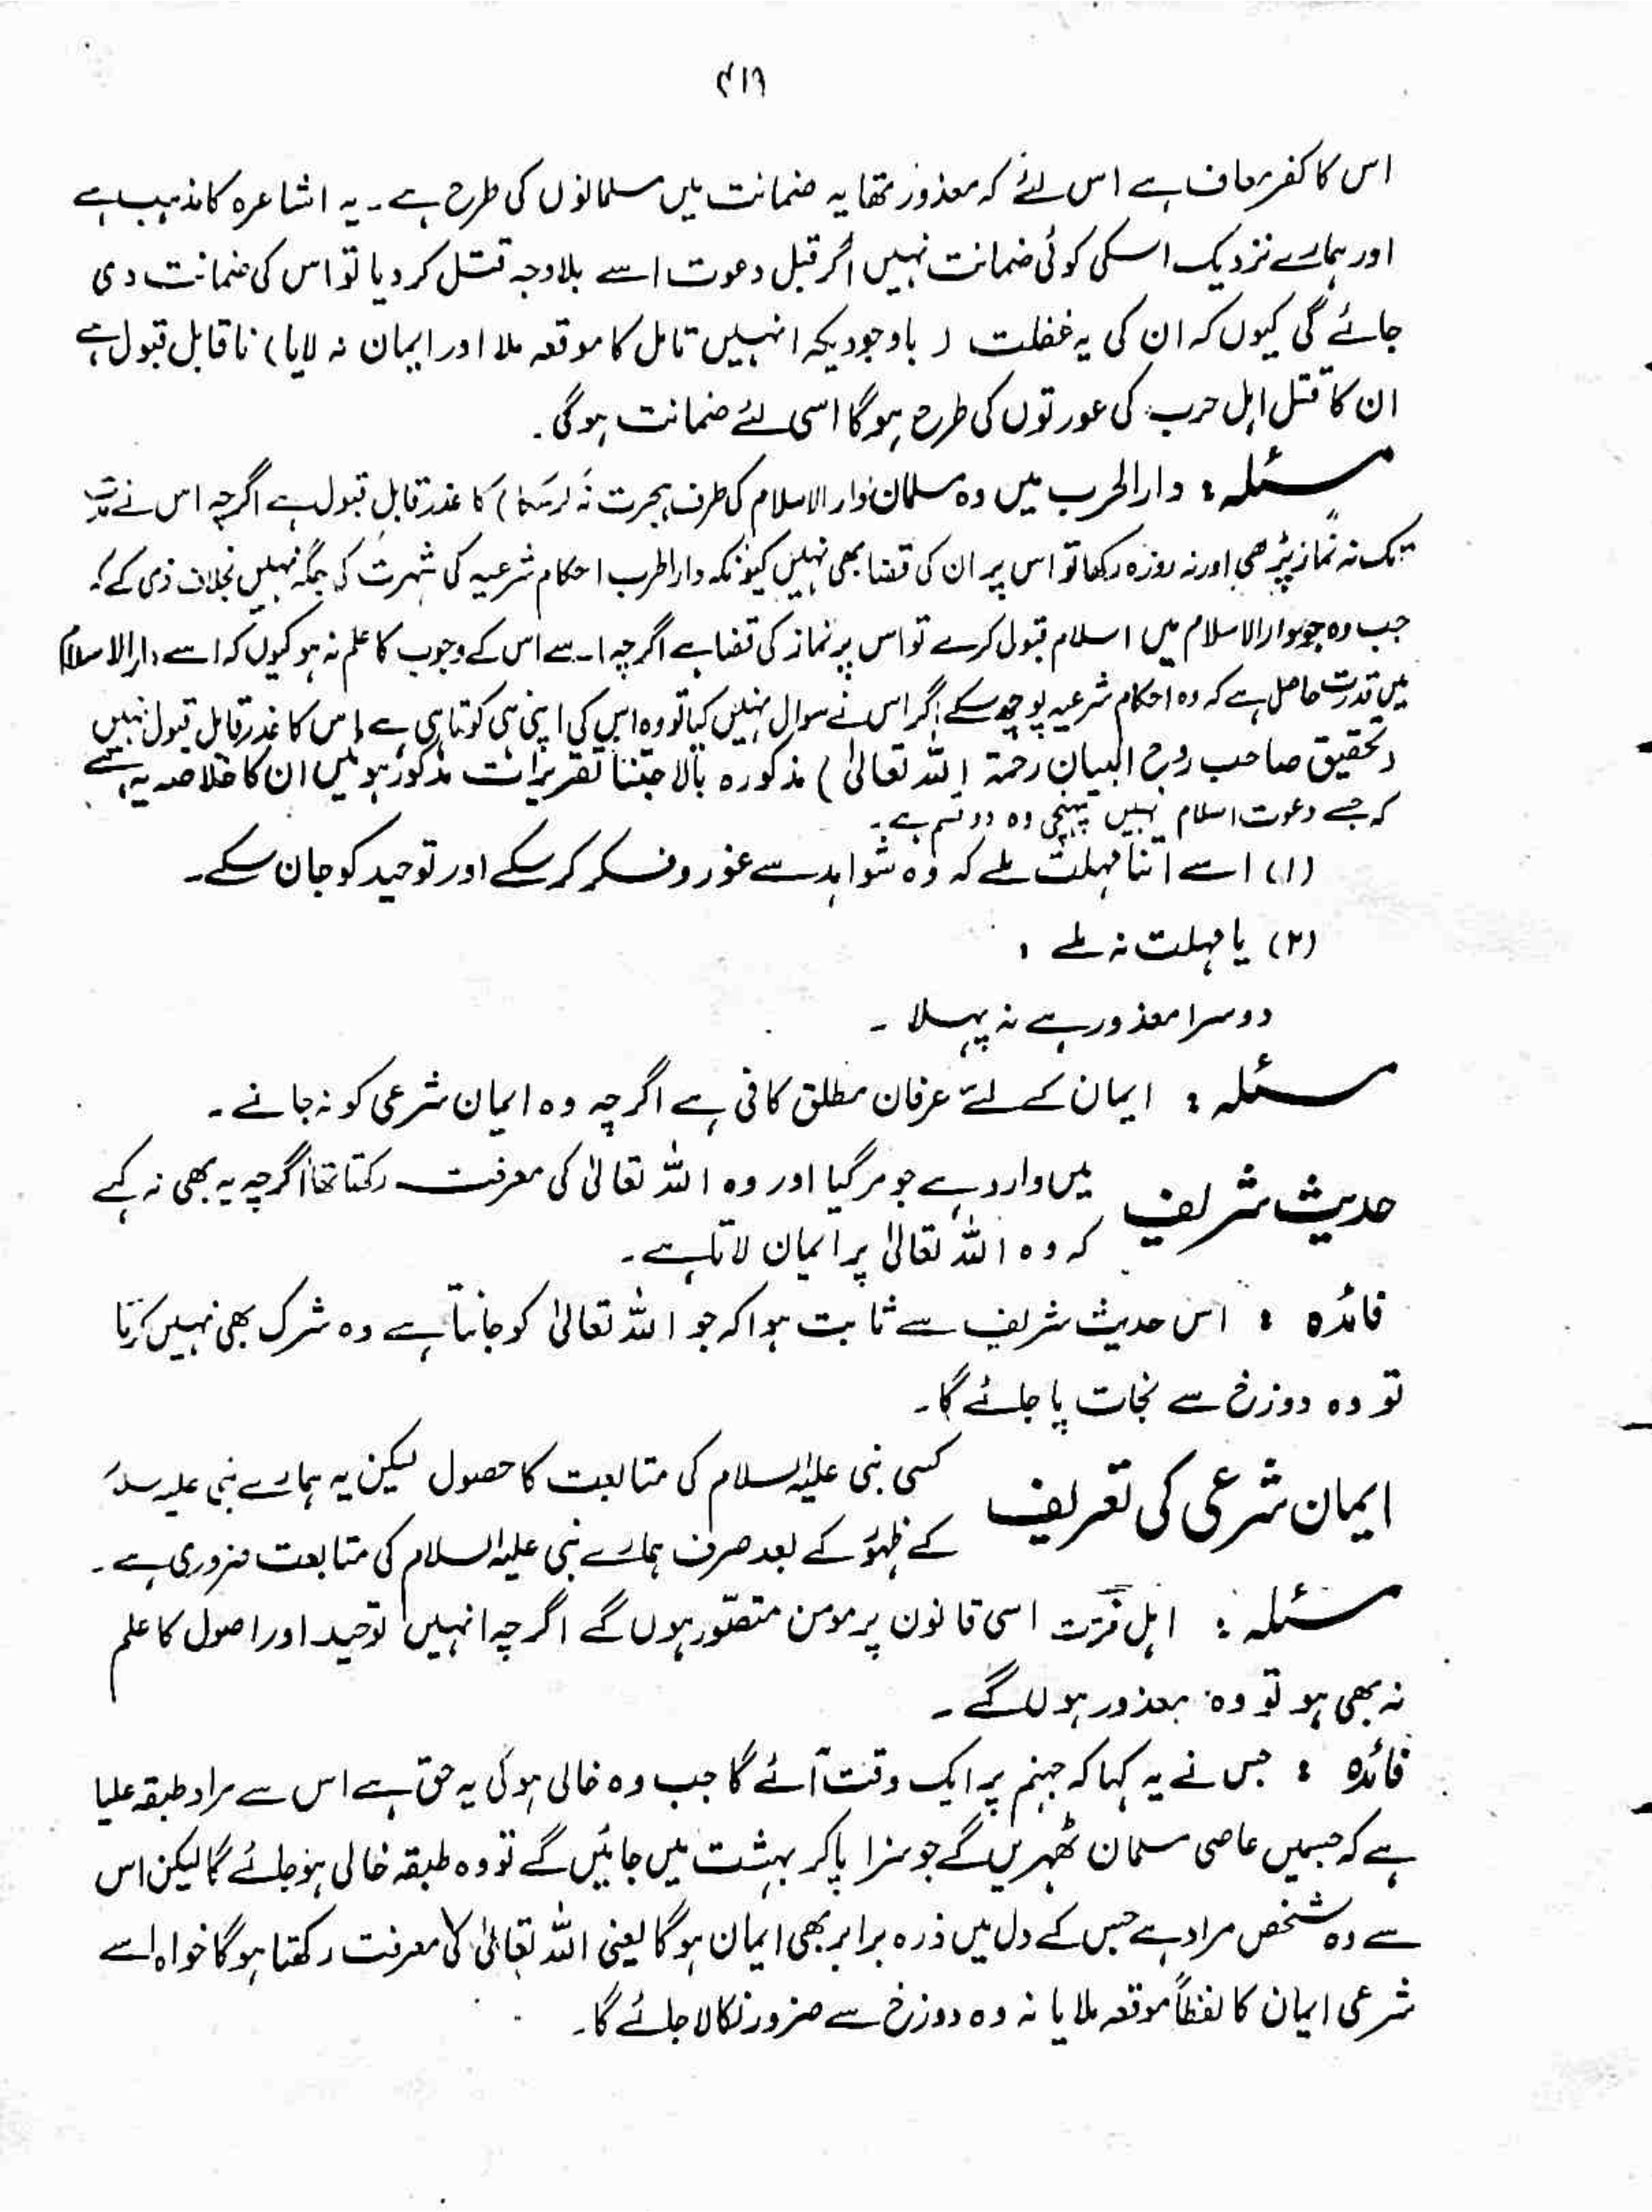 ۴۱۹
اس کا کفر معاف ہے اس لئے کہ معذور تھا یہ ضمانت میں مسلمانوں کی طرح ہے۔ یہ اشاعرہ کا مذہب ہے
اور ہمارے نزدیک اسکی کوئی ضمانت نہیں اگر قبل دعوت اسے بلاوجہ قتل کر دیا تو اس کی ضمانت دی
جائے گی کیوں کہ ان کی یہ غفلت ( باوجودیکہ انہیں تامل کا موقعہ ملا اور ایمان نہ لایا) ناقابل قبول ہے
ان کا قتل اہل حرب کی عورتوں کی طرح ہوگا اسی لئے ضمانت ہوگی۔
مسئلہ : دارالحرب میں وہ مسلمان (دار الاسلام کی طرف ہجرت نہ کرسکا) کا عذر قابل قبول ہے اگرچہ اس نے مدت
تک نہ نماز پڑھی اور نہ روزہ رکھا تو اس پر ان کی قضا بھی نہیں کیونکہ دارالحرب احکام شرعیہ کی شہرت کی جگہ نہیں بخلاف ذمی کے کہ
جب وہ جو دارالاسلام میں اسلام قبول کرے تو اس پر نماز کی قضا ہے اگرچہ اسے اس کے وجوب کا علم نہ ہو کیوں کہ اسے دارالاسلام
میں قدرت حاصل ہے کہ وہ احکام شرعیہ پوچھ سکے اگر اس نے سوال نہیں کیا تو وہ اس کی اپنی ہی کوتاہی ہے اس کا عذر قابل قبول نہیں
(تحقیق صاحب روح البیان رحمۃ اللہ تعالیٰ) مذکورہ بالا جتنا تقریرات مذکور ہوئیں ان کا خلاصہ یہ ہے
کہ جسے دعوت اسلام نہیں پہنچی وہ دو قسم ہے۔
(۱) اسے اتنا مہلت ملے کہ وہ شواہد سے غور و فکر کر سکے اور توحید کو جان سکے۔
(۲) یا مہلت نہ ملے ،
دوسرا معذور ہے نہ پہلا ۔
مسئلہ : ایمان کے لئے عرفان مطلق کافی ہے اگرچہ وہ ایمان شرعی کو نہ جانے۔
حدیث شریف میں وارد ہے جو مر گیا اور وہ اللہ تعالیٰ کی معرفت رکھتا تھا اگرچہ یہ بھی نہ کہے
کہ وہ اللہ تعالیٰ پر ایمان لاتا ہے۔
فائدہ : اس حدیث شریف سے ثابت ہوا کہ جو اللہ تعالیٰ کو جانتا ہے وہ شرک بھی نہیں کرتا
تو وہ دوزخ سے نجات پا جائے گا۔
ایمان شرعی کی تعریف کسی نبی علیہ السلام کی متابعت کا حصول لیکن یہ ہمارے نبی علیہ سلام
کے ظہور کے بعد صرف ہمارے نبی علیہ السلام کی متابعت ضروری ہے۔
مسئلہ : اہل فترت اسی قانون پر مومن متصور ہوں گے اگرچہ انہیں توحید اور اصول کا علم
نہ بھی ہو تو وہ معذور ہوں گے ۔
فائدہ : جس نے یہ کہا کہ جہنم پر ایک وقت آئے گا جب وہ خالی ہوگی یہ حق ہے اس سے مراد طبقہ علیا
ہے کہ جسمیں عاصی مسلمان ٹھہریں گے جو سزا پاکر بہشت میں جائیں گے تو وہ طبقہ خالی ہو جائے گا لیکن اس
سے وہ شخص مراد ہے جس کے دل میں ذرہ برابر بھی ایمان ہوگا یعنی اللہ تعالیٰ کی معرفت رکھتا ہوگا خواہ اسے
شرعی ایمان کا لفظاً موقعہ ملا یا نہ وہ دوزخ سے ضرور نکالا جائے گا۔